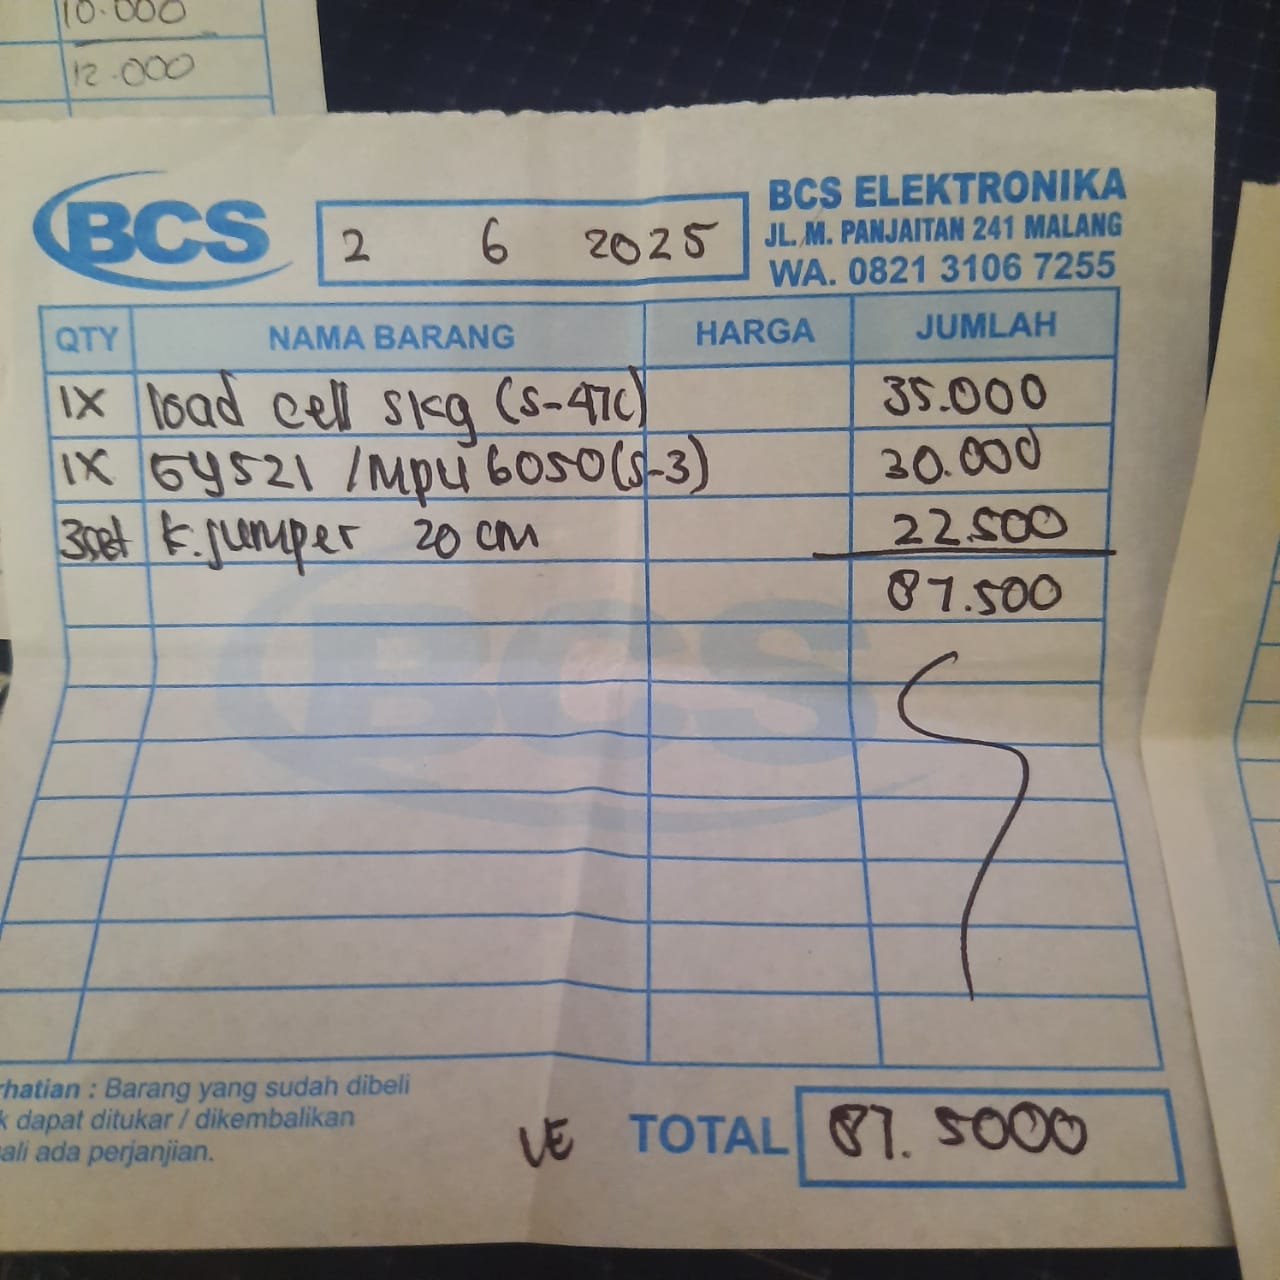 10.000
12.000
BCS
2 6 2025
BCS ELEKTRONIKA
JL. M. PANJAITAN 241 MALANG
WA. 0821 3106 7255
QTY NAMA BARANG HARGA JUMLAH
1X load cell 5kg (S-47C) 35.000
1X GY521 /MPU 6050(S-3) 30.000
3set k.jumper 20 cm 22.500
87.500
BCS
rhatian : Barang yang sudah dibeli
k dapat ditukar / dikembalikan
ali ada perjanjian.
VE TOTAL 87.5000